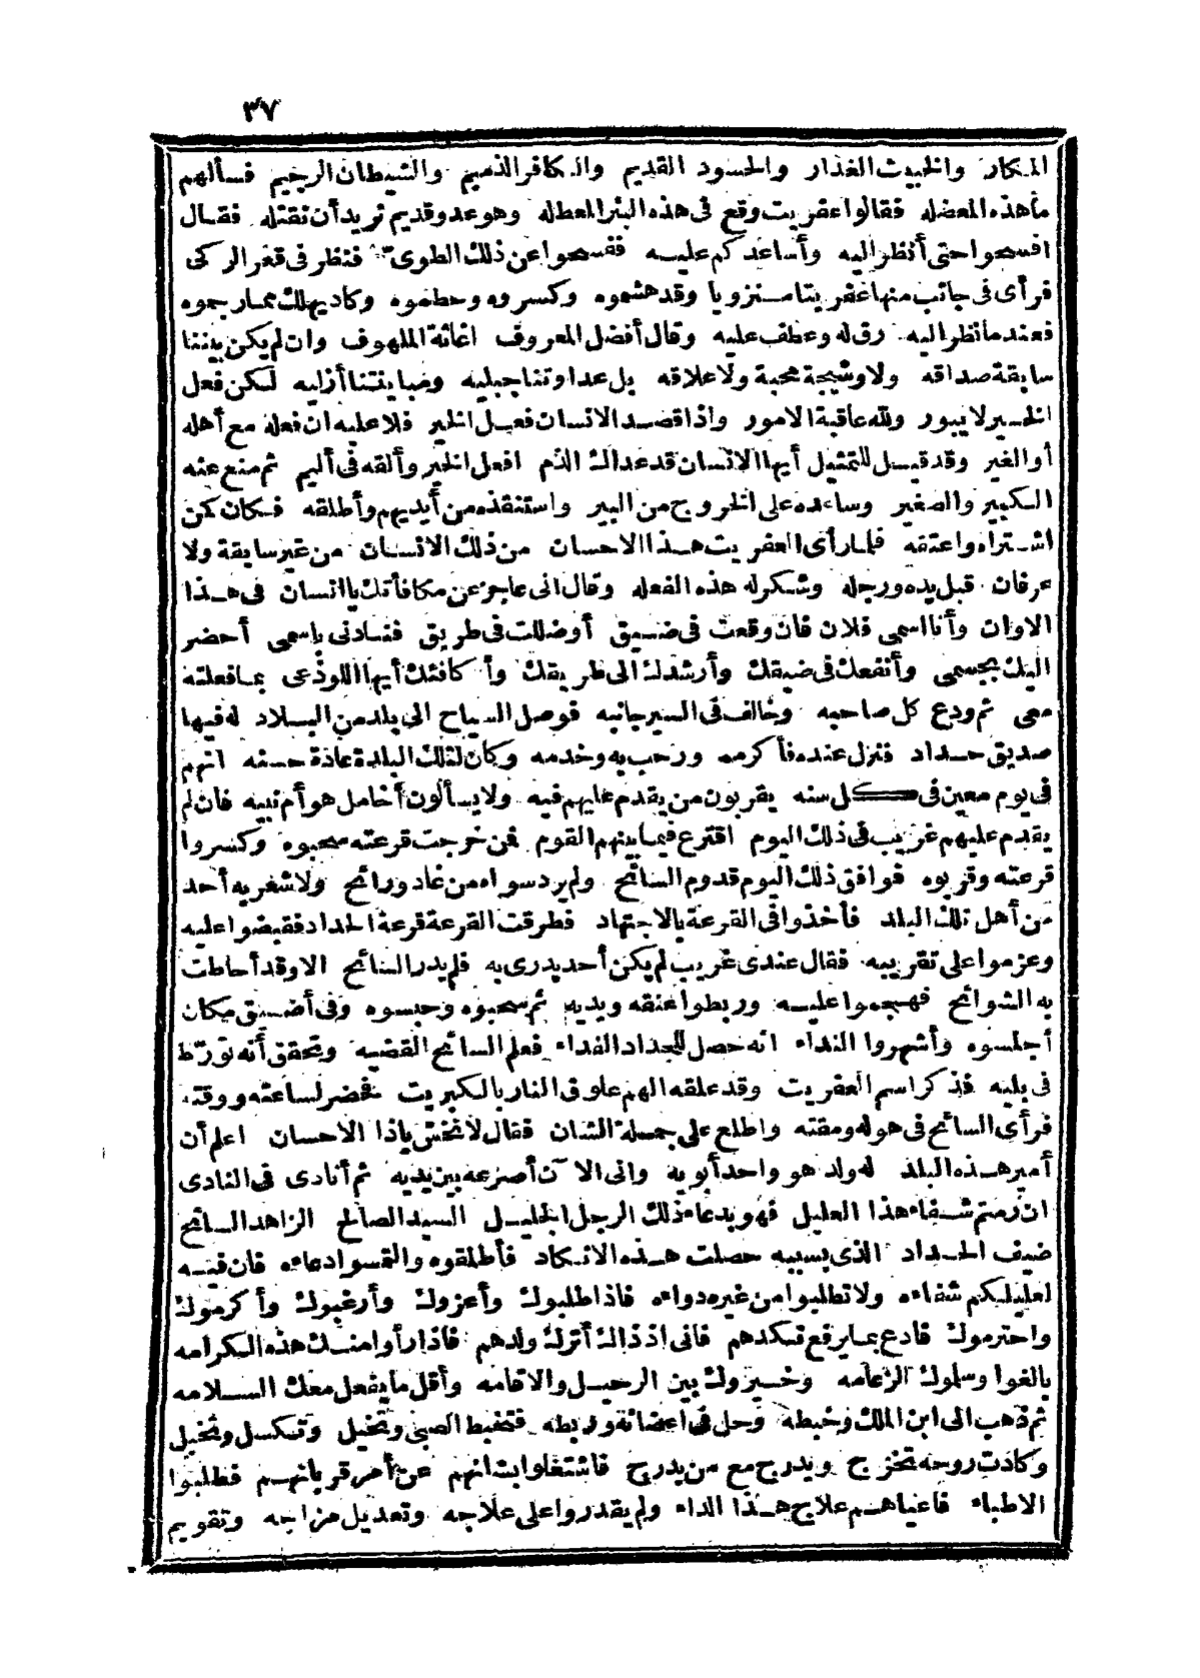 ٣٧
المكار والخبيث الغدار والحسود القديم والكافر الذميم والشيطان الرجيم فسألهم
ما هذه المعضله فقالوا عفريت وقع فى هذه البئر المعطله وهو عدو قديم نريد أن نقتله فقال
افسحوا حتى أنظر اليه وأساعدكم عليه ففسحوا عن ذلك الطوى فنظر فى قعر الركى
فرأى فى جانب منها عفريتا منزويا وقد هشموه وكسروه وحطموه وكاد يهلك مما رجموه
فعند ما نظر اليه رق له وعطف عليه وقال أفضل المعروف اغاثة الملهوف وان لم يكن بيننا
سابقة صداقه ولا وشيجة محبة ولا علاقه بل عداوتنا جبليه ومباينتنا أزليه لكن فعل
الخير لا يبور ولله عاقبة الامور واذا قصد الانسان فعل الخير فلا عليه ان فعله مع أهله
أو الغير وقد قيل للتمثيل أيها الانسان قد عداك الذم افعل الخير وألقه فى اليم ثم منع عنه
الكبير والصغير وساعده على الخروج من البير واستنقذه من أيديهم وأطلقه فكان كمن
اشتراه واعتقه فلما رأى العفريت هذا الاحسان من ذلك الانسان من غير سابقة ولا
عرفان قبل يده ورجله وشكر له هذه الفعله وقال انى عاجز عن مكافأتك يا انسان فى هذا
الاوان وأنا اسمى فلان فان وقعت فى ضيق أو ضللت فى طريق فنادنى باسمى أحضر
اليك بجسمى وأنفعك فى ضيقك وأرشدك الى طريقك وأكافئك أيها اللوذعى بما فعلته
معى ثم ودع كل صاحبه وخالف فى السير جانبه فوصل السياح الى بلد من البلاد له فيها
صديق حداد فنزل عنده فأكرمه ورحب به وخدمه وكان لتلك البلدة عادة حسنه انهم
فى يوم معين فى كل سنه يقربون من يقدم عليهم فيه ولا يسألون أخامل هو أم نبيه فان لم
يقدم عليهم غريب فى ذلك اليوم اقترع فيما بينهم القوم فمن خرجت قرعته سحبوه وكسروا
قرعته وقربوه فوافق ذلك اليوم قدوم السائح ولم يرد سواه من غاد ورائح ولا شعر به أحد
من أهل تلك البلد فأخذوا فى القرعة بالاجتهاد فطرقت القرعة قرعة الحداد فقبضوا عليه
وعزموا على تقريبه فقال عندى غريب لم يكن أحد يدرى به فلم يدر السائح الا وقد أحاطت
به الشوائح فهجموا عليه وربطوا عنقه ويديه ثم سحبوه وحبسوه وفى أضيق مكان
أجلسوه وأشهروا النداء انه حصل للحداد الفداء فعلم السائح القضيه وتحقق أنه تورّط
فى بليه فذكر اسم العفريت وقد علقه الهم علوق النار بالكبريت فحضر لساعته ووقته
فرأى السائح فى هوله ومقته واطلع على جملة الشان فقال لا تخش ياذا الاحسان اعلم أن
أمير هذه البلد له ولد هو واحد أبويه وانى الآن أصرعه بين يديه ثم أنادى فى النادى
ان رمتم شفاء هذا العليل فهو بدعاء ذلك الرجل الجليل السيد الصالح الزاهد السائح
ضيف الحداد الذى بسببه حصلت هذه الانكاد فأطلقوه والتمسوا دعاءه فان فيه
لعليلكم شفاءه ولا تطلبوا من غيره دواءه فاذا طلبوك وأعزوك وأرغبوك وأكرموك
واحترموك فادع بما يرفع نكدهم فانى اذ ذاك أترك ولدهم فاذا رأوا منك هذه الكرامه
بالغوا وسلموك الزعامه وخيروك بين الرحيل والاقامه وأقل ما يفعل معك السلامه
ثم ذهب الى ابن الملك وخبطه وحل فى اعضائه وربطه فتخبط الصبى وتخبل وتكسل وتخبل
وكادت روحه تخرج ويدرج مع من يدرج فاشتغلوا بابنهم عن أمر قربانهم فطلبوا
الاطباء فاعياهم علاج هذا الداء ولم يقدروا على علاجه وتعديل مزاجه وتقويم